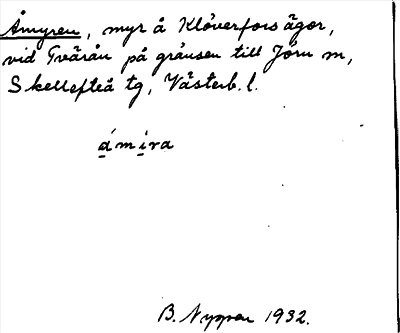 Åmyren, myr å Klöverfors ägor,
vid Tvärån på gränsen till Jörn m,
Skellefteå tg, Västerb. l.
ámira
B. Nyman 1932.